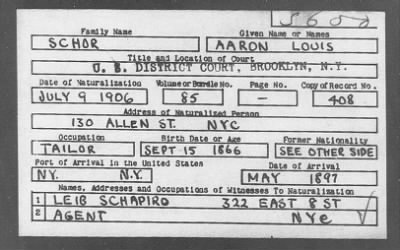 S600
Family Name Given Name or Names
SCHOR AARON LOUIS
Title and Location of Court
U. S. DISTRICT COURT, BROOKLYN, N.Y.
Date of Naturalization Volume or Bundle No. Page No. Copy of Record No.
JULY 9 1906 85 — 408
Address of Naturalized Person
130 ALLEN ST. NYC
Occupation Birth Date or Age Former Nationality
TAILOR SEPT 15 1866 SEE OTHER SIDE
Port of Arrival in the United States Date of Arrival
NY. N.Y. MAY 1897
Names, Addresses and Occupations of Witnesses To Naturalization
1 LEIB SCHAPIRO 322 EAST 8 ST
2 AGENT NYC